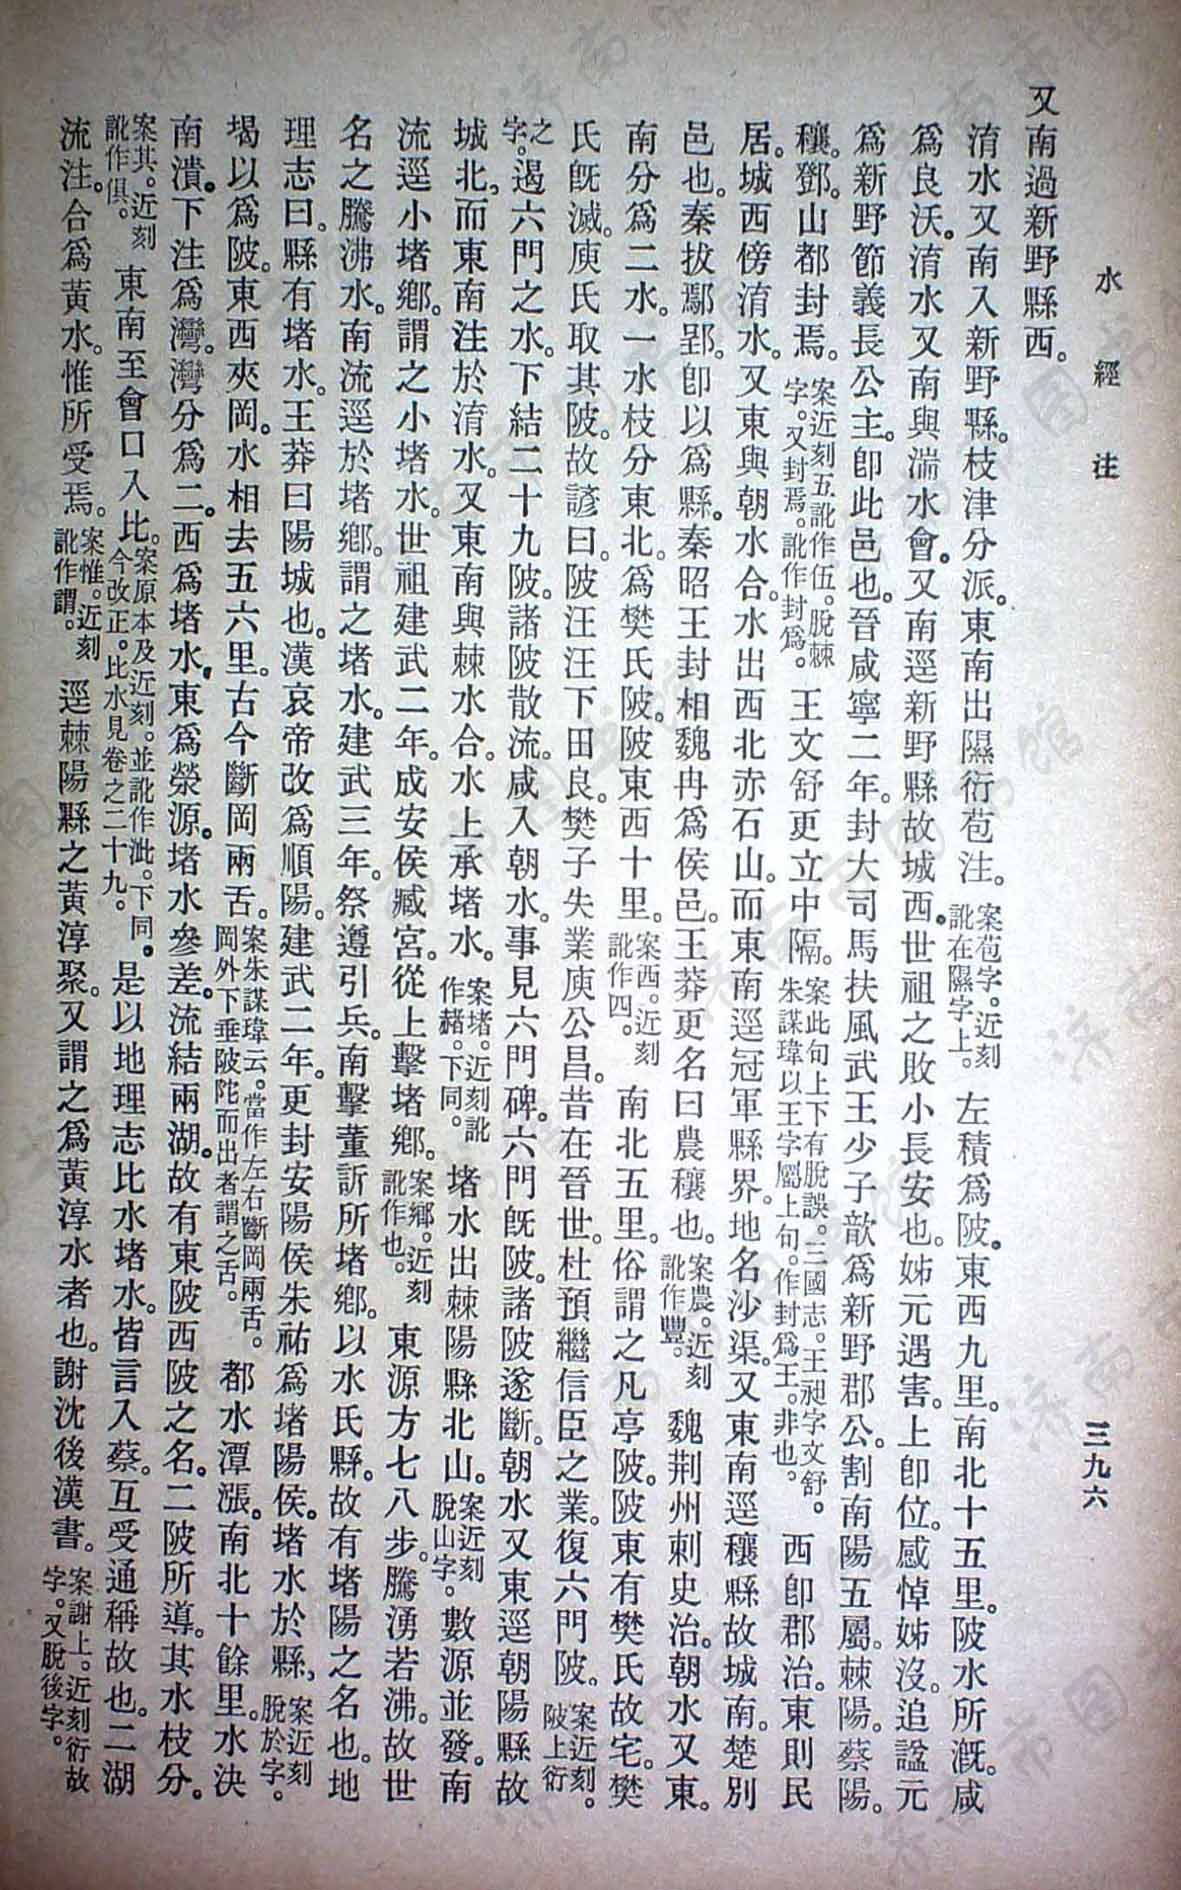 水經注
三九六
又南過新野縣西。
淯水又南入新野縣。枝津分派。東南出隰衍苞注。案苞字。近刻訛在隰字上。左積爲陂。東西九里。南北十五里。陂水所溉。咸
爲良沃。淯水又南與湍水會。又南逕新野縣故城西。世祖之敗小長安也。姊元遇害。上卽位。感悼姊沒。追諡元
爲新野節義長公主。卽此邑也。晉咸寧二年。封大司馬扶風武王少子歆爲新野郡公。割南陽五屬。棘陽。蔡陽。
穰。鄧。山都封焉。案近刻五訛作伍。脫棘字。又封焉。訛作封爲。王文舒更立中隔。案此句上下有脫誤。三國志。王昶字文舒。朱謀㙔以王字屬上句。作封爲王。非也。西卽郡治。東則民
居。城西傍淯水。又東與朝水合。水出西北赤石山。而東南逕冠軍縣界。地名沙渠。又東南逕穰縣故城南。楚別
邑也。秦拔鄢郢。卽以爲縣。秦昭王封相魏冉爲侯邑。王莽更名曰農穰也。案農。近刻訛作豐。魏荆州刺史治。朝水又東。
南分爲二水。一水枝分東北。爲樊氏陂。陂東西十里。案西。近刻訛作四。南北五里。俗謂之凡亭陂。陂東有樊氏故宅。樊
氏旣滅。庾氏取其陂。故諺曰。陂汪汪下田良。樊子失業庾公昌。昔在晉世。杜預繼信臣之業。復六門陂。案近刻。陂上衍
之字。遏六門之水。下結二十九陂。諸陂散流。咸入朝水。事見六門碑。六門旣陂。諸陂遂斷。朝水又東逕朝陽縣故
城北。而東南注於淯水。又東南與棘水合。水上承堵水。案堵。近刻訛作赭。下同。堵水出棘陽縣北山。案近刻脫山字。數源並發。南
流逕小堵鄉。謂之小堵水。世祖建武二年。成安侯臧宮。從上擊堵鄉。案鄉。近刻訛作也。東源方七八步。騰湧若沸。故世
名之騰沸水。南流逕於堵鄉。謂之堵水。建武三年。祭遵引兵。南擊董訢所堵鄉。以水氏縣。故有堵陽之名也。地
理志曰。縣有堵水。王莽曰陽城也。漢哀帝改爲順陽。建武二年。更封安陽侯朱祐爲堵陽侯。堵水於縣。案近刻脫於字。
堨以爲陂。東西夾岡。水相去五六里。古今斷岡兩舌。案朱謀㙔云。當作左右斷岡兩舌。岡外下垂陂陀而出者謂之舌。都水潭漲。南北十餘里。水決
南潰。下注爲灣。灣分爲二。西爲堵水。東爲滎源。堵水參差。流結兩湖。故有東陂西陂之名。二陂所導。其水枝分。
案其。近刻訛作俱。東南至會口入比。案原本及近刻。並訛作泚。下同。今改正。比水見卷之二十九。是以地理志比水堵水。皆言入蔡。互受通稱故也。二湖
流注。合爲黃水。惟所受焉。案惟。近刻訛作謂。逕棘陽縣之黃淳聚。又謂之爲黃淳水者也。謝沈後漢書。案謝上。近刻衍故字。又脫後字。